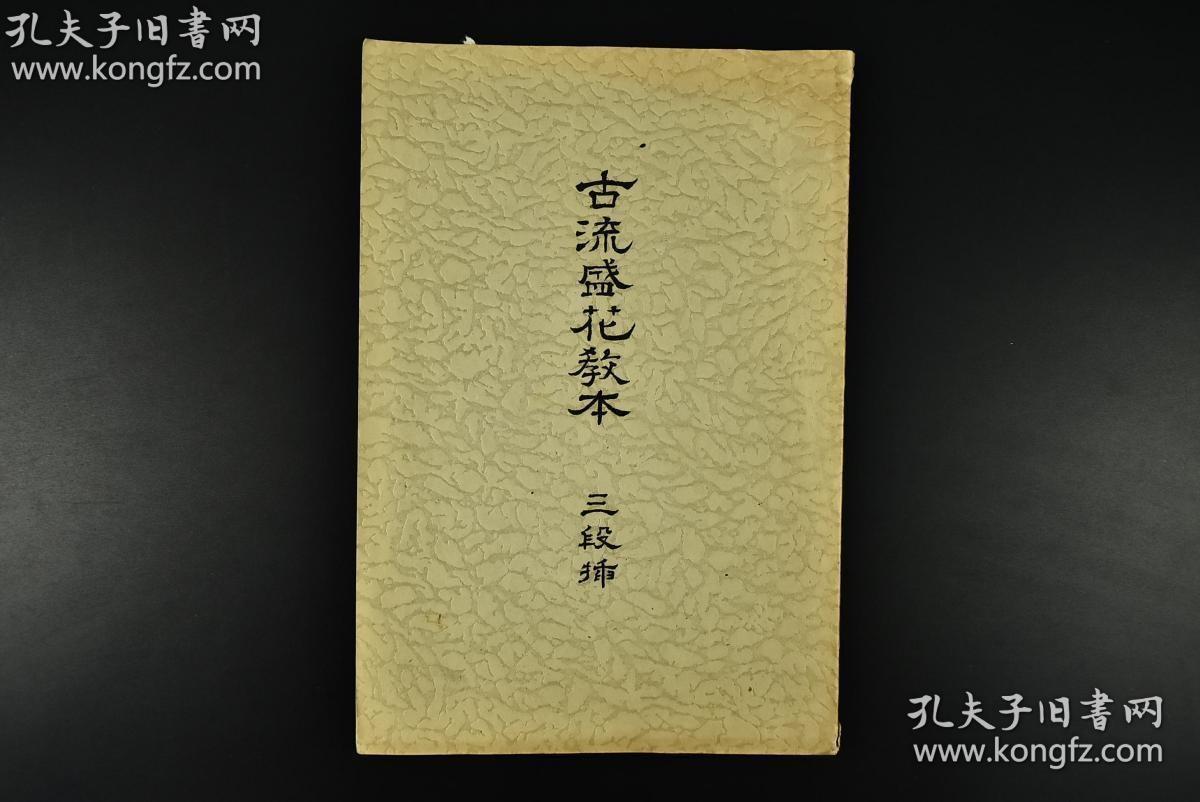 孔夫子旧書网
www.kongfz.com
古流盛花教本
三段挿
孔夫子旧書网
www.kongfz.com